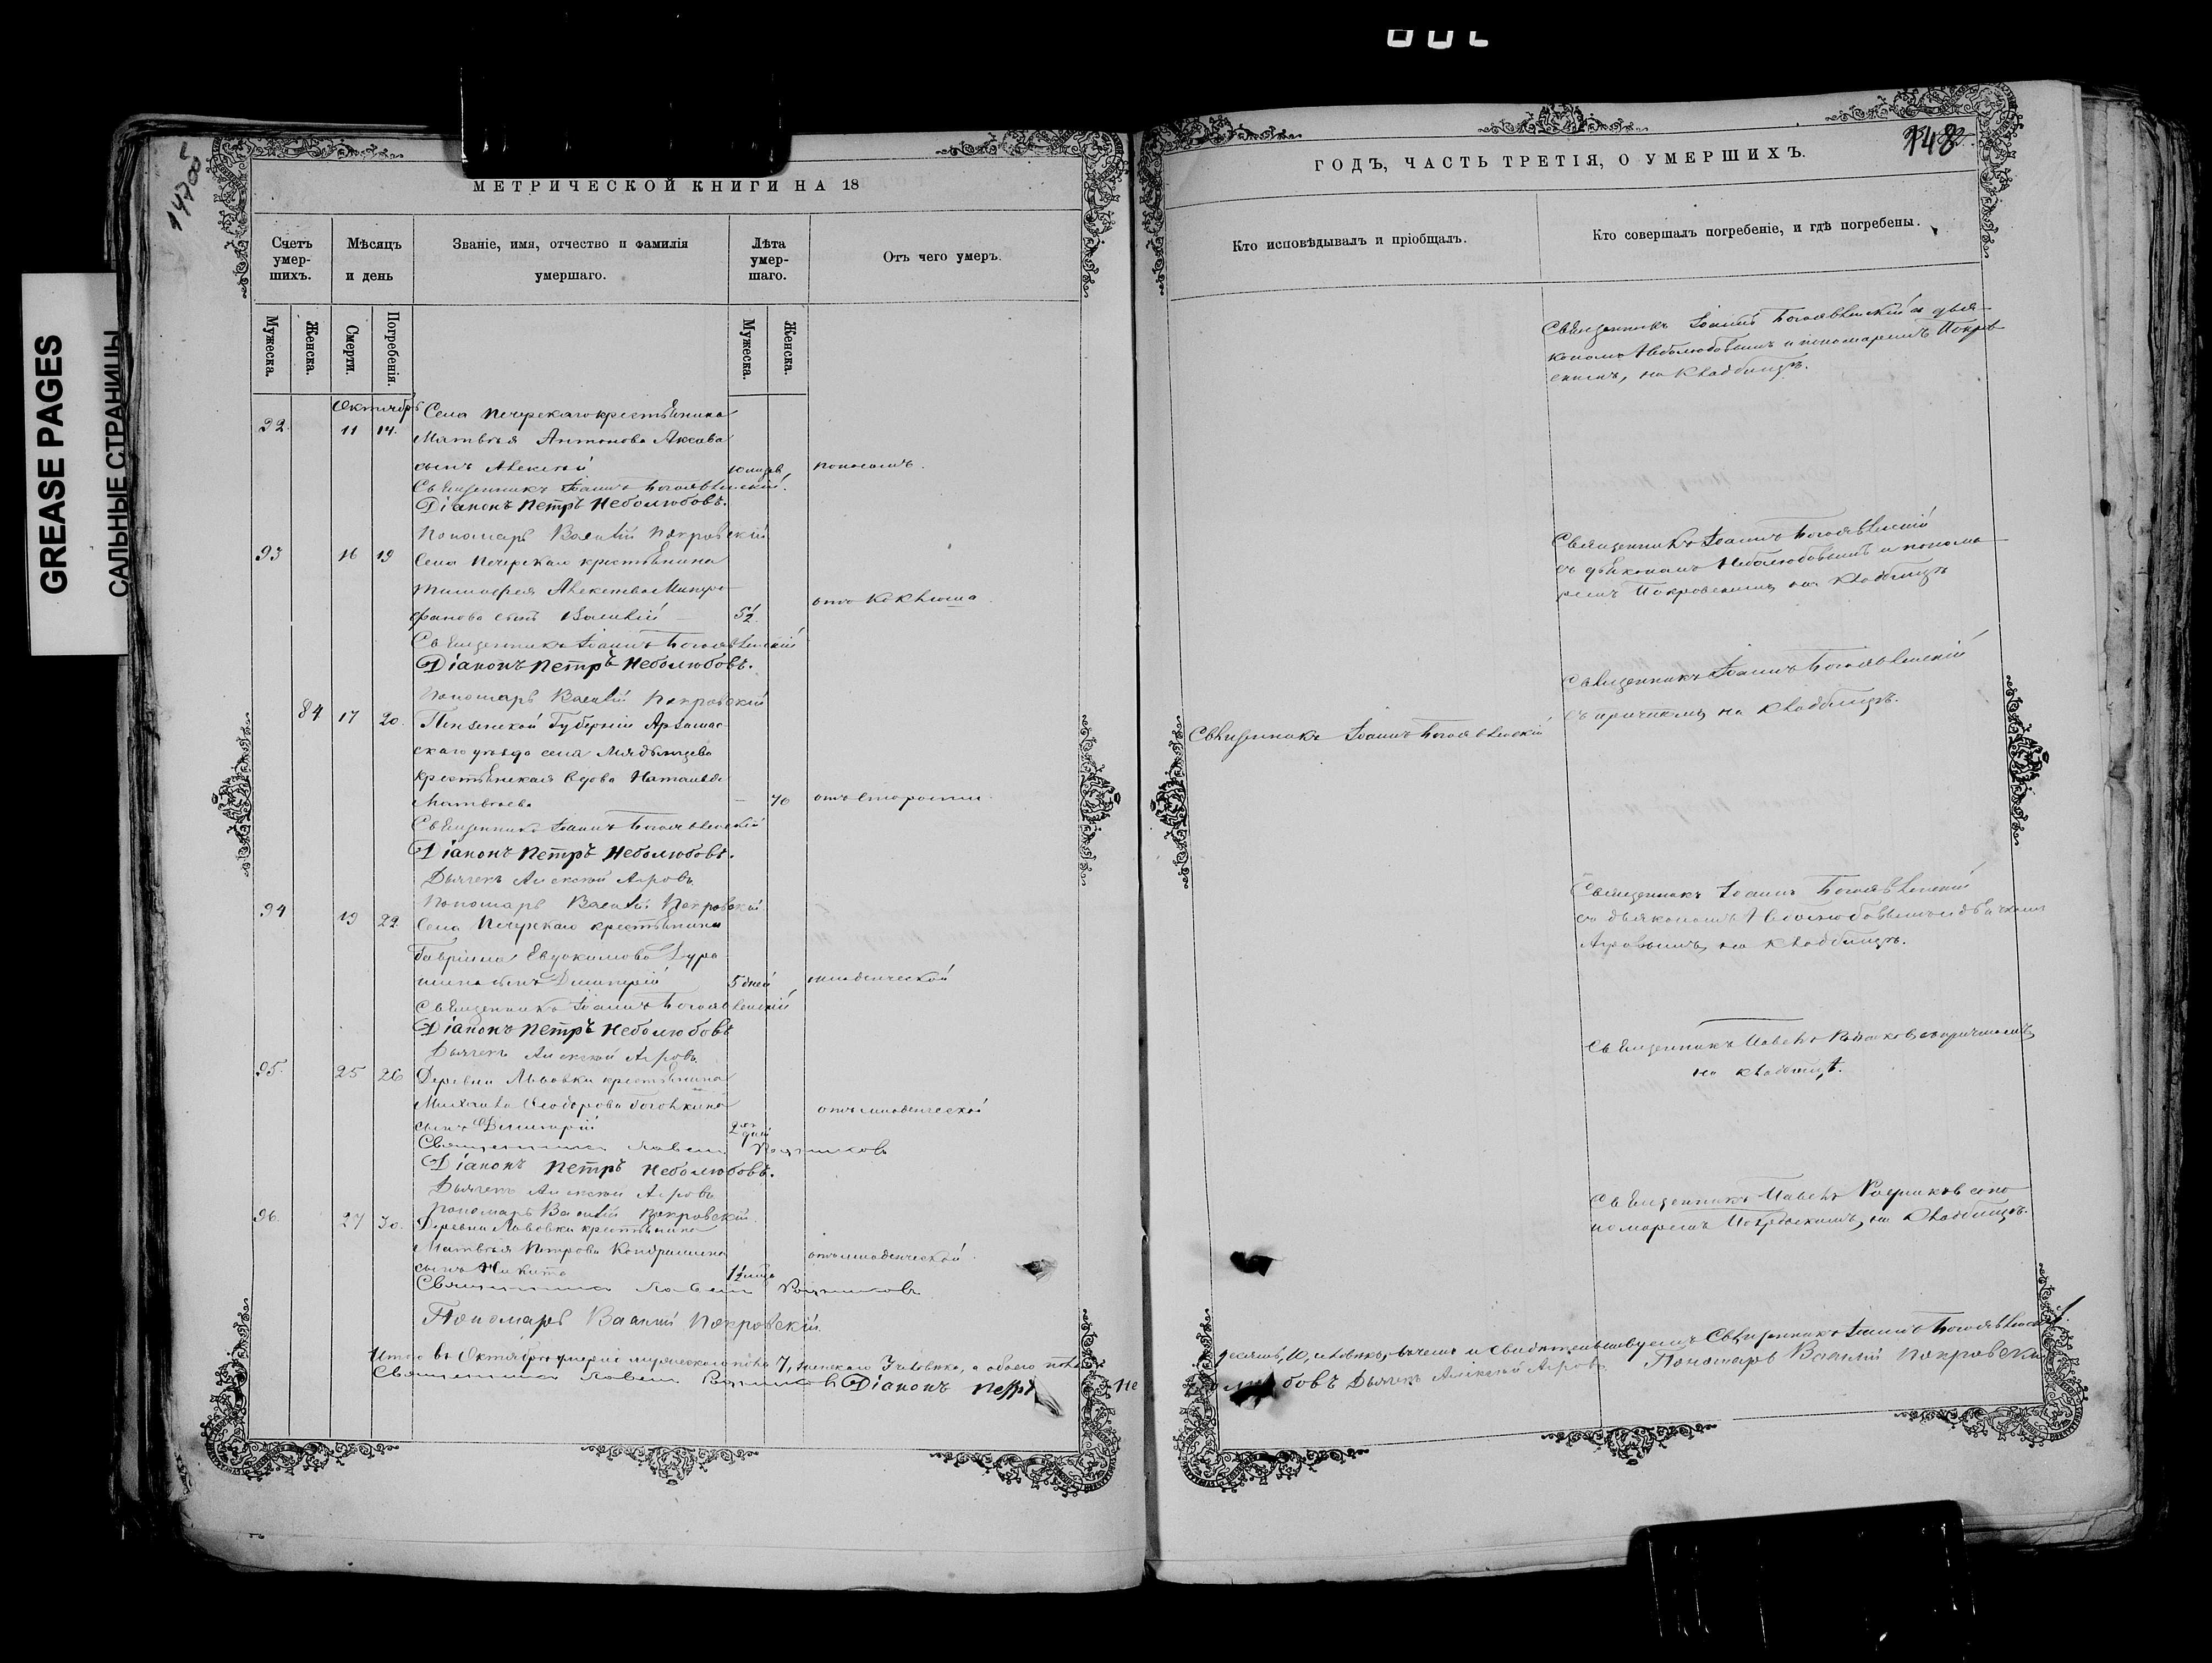 GREASE PAGES
САЛЬНЫЕ СТРАНИЦЫ
МЕТРИЧЕСКОЙ КНИГИ НА 18
Счетъ умер-шихъ.
Мѣсяцъ и день
Званіе, имя, отчество и фамилія умершаго.
Лѣта умер-шаго.
Отъ чего умеръ.
Мужеска.
Женска.
Смерти.
Погребенія.
Мужеска.
Женска.
Октябрь
92. 11 14. Села Печерскаго крестьянина
Матвѣя Антонова
сынъ Алексѣй поносомъ.
Священникъ Іоаннъ Богоявленскій.
Діаконъ Петръ Неболюбовъ.
Пономарь Василій Покровскій
93 16 19 Села Печерскаго крестьянина
Тимофея Алексѣева Митро-
фанова сынъ Василій 5½ отъ коклюша
Священникъ Іоаннъ Богоявленскій
Діаконъ Петръ Неболюбовъ.
Пономарь Василій Покровскій
84 17 20. Пензенской Губерніи
скаго уѣзда села
крестьянская вдова Наталья
Матвѣева 70 отъ старости.
Священникъ Іоаннъ Богоявленскій
Діаконъ Петръ Неболюбовъ.
Дьячекъ Алексѣй Агровъ
Пономарь Василій Покровскій
94 19 22 Села Печерскаго крестьянина
Гавріила Евдокимова
сынъ Димитрій 5 дней младенческой
Священникъ Іоаннъ Богоявленскій
Діаконъ Петръ Неболюбовъ
Дьячекъ Алексѣй Агровъ
95. 25 26 Деревни Львовки крестьянина
Михаила Ѳеодорова
сынъ Димитрій 2хъ дней отъ младенческой
Священникъ Павелъ Родниковъ
Діаконъ Петръ Неболюбовъ.
Дьячекъ Алексѣй Агровъ
Пономарь Василій Покровскій.
96. 27 30. Деревни Львовки крестьянина
Матвѣя Петрова Кондрашина
сынъ Никита отъ младенческой
Священникъ Павелъ Родниковъ
Пономарь Василій Покровскій.
Итого въ Октябрѣ умерло мужескаго пола 7, женскаго 3 человѣка, а обоего пола
Священникъ Павелъ Родниковъ Діаконъ Петръ Не
ГОДЪ, ЧАСТЬ ТРЕТІЯ, О УМЕРШИХЪ.
148
Кто исповѣдывалъ и пріобщалъ.
Кто совершалъ погребеніе, и гдѣ погребены.
Священникъ Іоаннъ Богоявленскій съ дья-
кономъ Неболюбовымъ и пономаремъ Покров-
скимъ, на кладбищѣ.
Священникъ Іоаннъ Богоявленскій
съ дьякономъ Неболюбовымъ и понома-
ремъ Покровскимъ, на кладбищѣ
Священникъ Іоаннъ Богоявленскій
Священникъ Іоаннъ Богоявленскій
съ причтомъ, на кладбищѣ.
Священникъ Іоаннъ Богоявленскій
съ дьякономъ Неболюбовымъ и дьячкомъ
Агровымъ, на кладбищѣ.
Священникъ Павелъ Родниковъ съ причтомъ,
на кладбищѣ.
Священникъ Павелъ Родниковъ съ по-
номаремъ Покровскимъ, на кладбищѣ.
десять, 10, человѣкъ, въ чемъ и свидѣтельствуемъ Священникъ Іоаннъ Богоявленскій.
любовъ Дьячекъ Алексѣй Агровъ. Пономарь Василій Покровскій